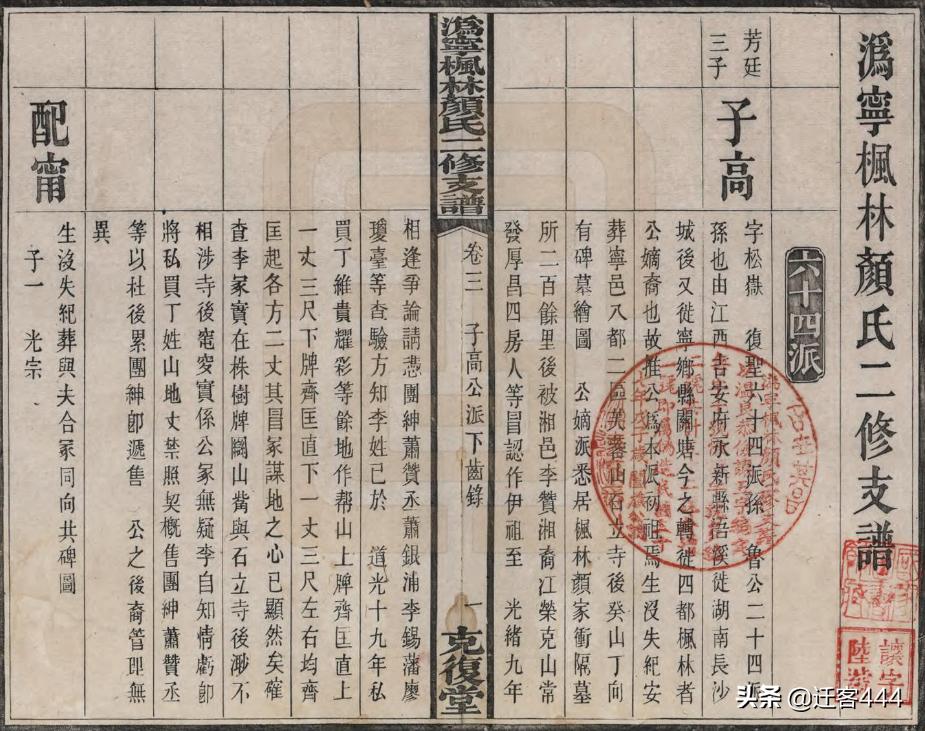 溈寧楓林顏氏二修支譜
六十四派
芳廷
三子
子高
字松嶽 復聖六十四派孫 魯公二十四
孫也由江西吉安府永新縣梧溪徙湖南長沙
城後又徙寧鄉縣關塘今之轉徙四都楓林者
公嫡裔也故推公為本派初祖焉生沒失紀安
葬寧邑八都二區芙蓉山石立寺後癸山丁向
有碑墓繪圖 公嫡派悉居楓林顏家衝隔墓
所二百餘里後被湘邑李贊湘裔江榮克山常
發厚昌四房人等冒認作伊祖至 光緒九年
溈寧楓林顏氏二修支譜
卷三 子高公派下齒錄
一
克復堂
相逢爭論請憑團紳蕭贊丞蕭銀浦李錫藩廖
瓊臺等查驗方知李姓已於 道光十九年私
買丁維貴耀彩等餘地作帮山上牌齊匡直上
一丈三尺下牌齊匡直下一丈三尺左右均齊
匡起各方二丈其冒冢謀地之心已顯然矣確
查李冢實在株樹牌關山觜與石立寺後渺不
相涉寺後竁窆實係公冢無疑李自知情虧卽
將私買丁姓山地丈禁照契概售團紳蕭贊丞
等以杜後累團紳卽遞售 公之後裔管理無
異
配甯
生沒失紀葬與夫合冢同向共碑圖
子一 光宗
讀字
陸游
头条 @迁客444